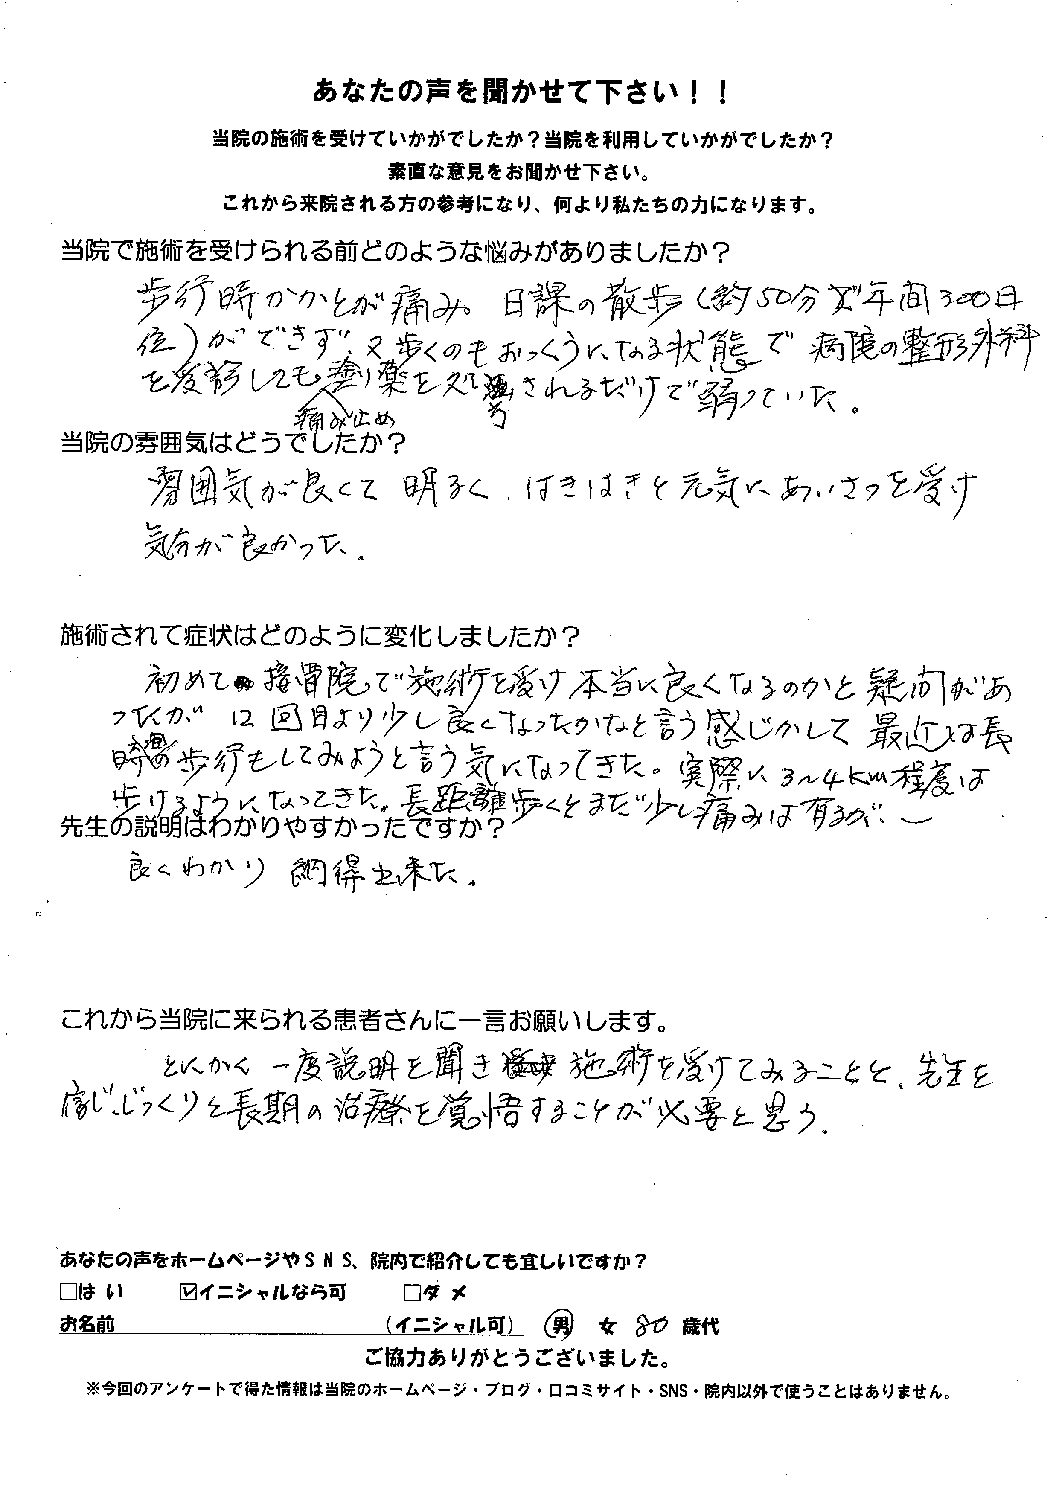 あなたの声を聞かせて下さい！！
当院の施術を受けていかがでしたか？当院を利用していかがでしたか？
素直な意見をお聞かせ下さい。
これから来院される方の参考になり、何より私たちの力になります。
当院で施術を受けられる前どのような悩みがありましたか？
歩行時かかとが痛み。日課の散歩（約50分で年間300日
位）ができず、又歩くのもおっくうになる状態で病院の整形外科
を受診しても塗り薬を処方されるだけで弱っていた。
痛み止め
当院の雰囲気はどうでしたか？
雰囲気が良くて明るく、はきはきと元気にあいさつを受け
気分が良かった。
施術されて症状はどのように変化しましたか？
初めて接骨院で施術を受け本当に良くなるのかと疑問があ
ったが12回目より少し良くなったかなと言う感じがして最近は長
時間歩行もしてみようと言う気になってきた。実際に3～4km程度は
歩けるようになってきた。長距離歩くとまだ少し痛みは有るが、～
先生の説明はわかりやすかったですか？
良くわかり納得出来た。
これから当院に来られる患者さんに一言お願いします。
とにかく一度説明を聞き施術を受けてみることと、先生を
信じ、じっくりと長期の治療を覚悟することが必要と思う。
あなたの声をホームページやSNS、院内で紹介しても宜しいですか？
□はい ☑イニシャルなら可 □ダメ
お名前 （イニシャル可） 男 女 80 歳代
ご協力ありがとうございました。
※今回のアンケートで得た情報は当院のホームページ・ブログ・口コミサイト・SNS・院内以外で使うことはありません。